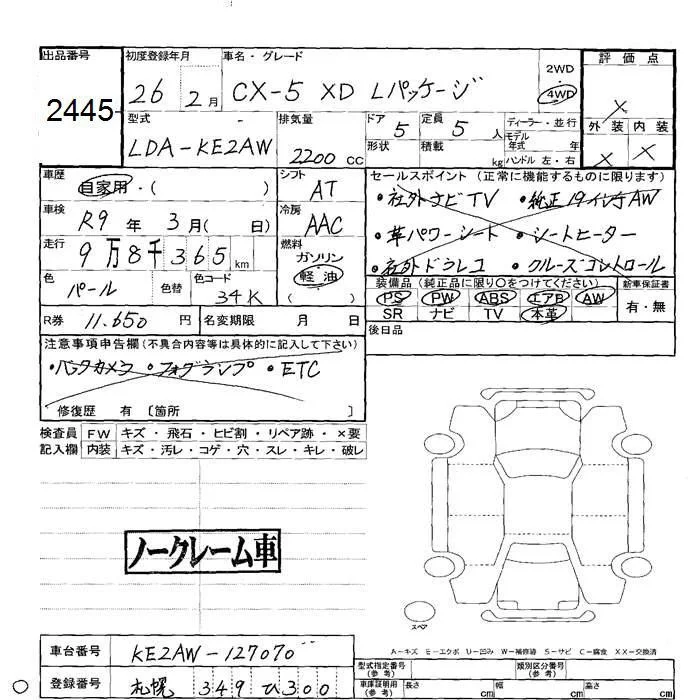 出品番号
2445
初度登録年月
26 2月
車名・グレード
CX-5 XD Lパッケージ
2WD
4WD
評価点
×
外装 内装
× ×
型式
LDA-KE2AW
排気量
2200 CC
ドア 5
定員 5 人
形状
積載 kg
ディーラー・並行
モデル年式 年
ハンドル 左・右
車歴
自家用・( )
シフト
AT
車検
R9年 3月( 日)
冷房
AAC
走行
9万8千365km
燃料
ガソリン
軽油
( )
色
パール
色替
色コード
34K
セールスポイント(正常に機能するものに限ります)
・社外ナビTV ・純正19インチAW
・革パワーシート ・シートヒーター
・社外ドラレコ ・クルーズコントロール
装備品(純正品に限り○をつけてください)
PS PW ABS エアB AW
SR ナビ TV 本革
新車保証書
有・無
R券 11,650 円
名変期限 月 日
後日品
注意事項申告欄(不具合内容等は具体的に記入して下さい)
・バックカメラ ・フォグランプ ・ETC
修復歴 有 〔箇所 〕
検査員記入欄
FW キズ・飛石・ヒビ割・リペア跡・×要
内装 キズ・汚レ・コゲ・穴・スレ・キレ・破レ
ノークレーム車
スペア
A－キズ E－エクボ U－凹み W－補修跡 S－サビ C－腐食 XX－交換済
車台番号
KE2AW-127070
登録番号
札幌 349 ひ300
型式指定番号(参考)
類別区分番号(参考)
車庫証明用(参考)
長さ cm
幅 cm
高さ cm